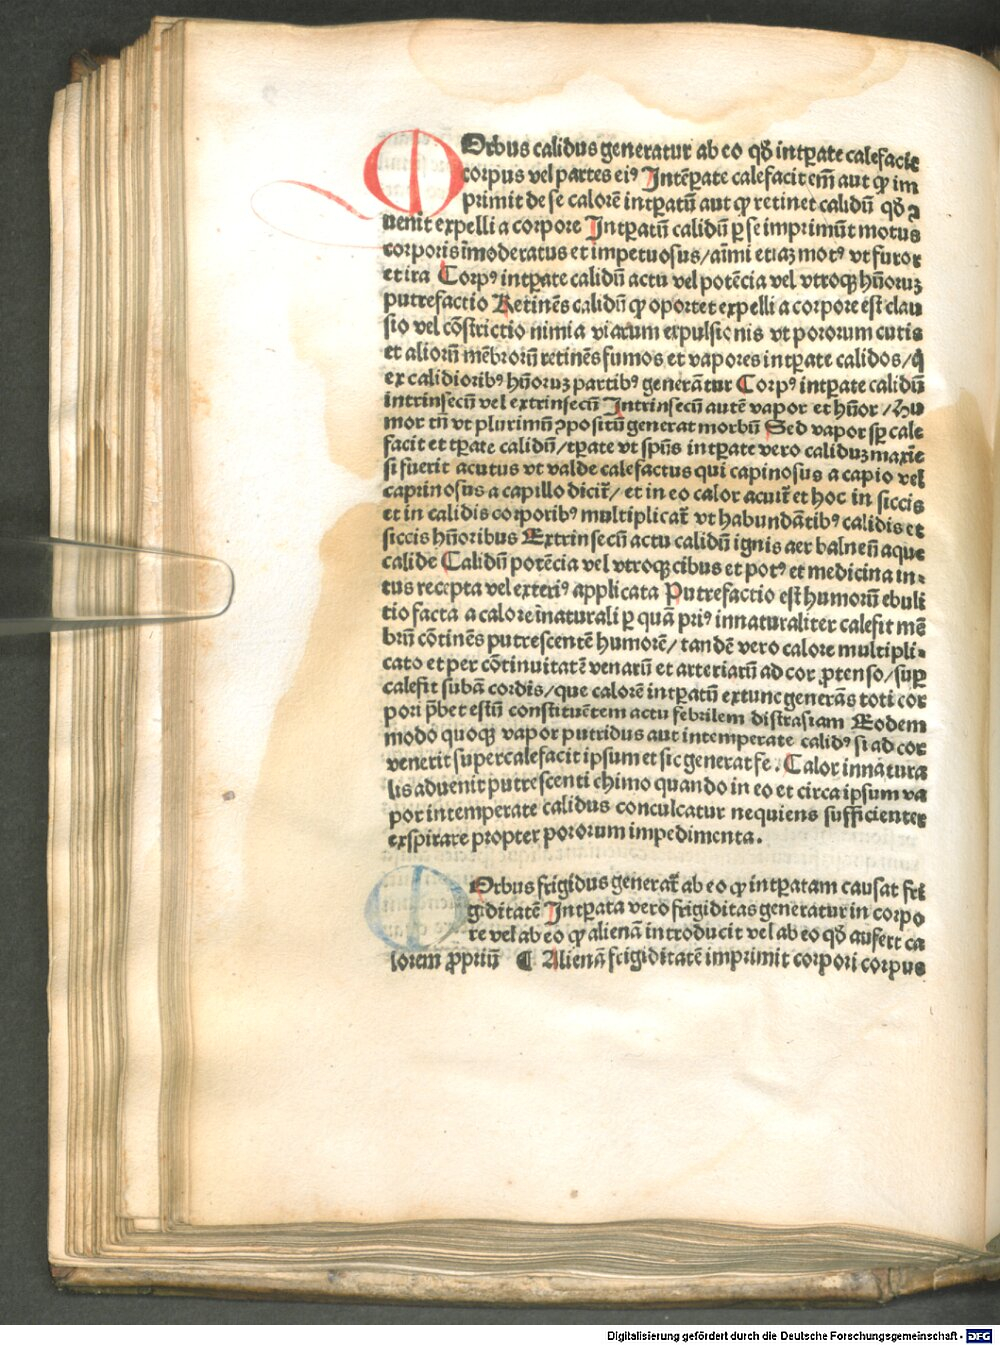 MOrbus calidus generatur ab eo qđ intꝑate calefacit
corpus vel partes eiꝰ Intēꝑate calefacit em̄ aut ꝙ im
primit de se calorē intꝑatū aut ꝙ retinet calidū qđ ↄ
uenit expelli a corpore Intꝑatū calidū ꝑ se imprimūt motus
corporis īmoderatus et impetuosus/aīmi etiaꝫ motꝰ vt furor
et ira Corpꝰ intꝑate calidū actu vel potēcia vel vtroqꝫ hūoruꝫ
putrefactio Retinēs calidū ꝙ oportet expelli a corpore est clau
sio vel cōstrictio nimia viarum expulsionis vt pororum cutis
et aliorū mēbrorū retinēs fumos et vapores intꝑate calidos/q̄
ex calidioribꝰ hūoruꝫ partibꝰ generātur Corpꝰ intꝑate calidū
intrinsecū vel extrinsecū Intrinsecū autē vapor et hūor/Hu
mor tn̄ vt plurimū ꝯpositū generat morbū Sed vapor sꝑ cale
facit et tꝑate calidū/tꝑate vt spūs intꝑate vero caliduꝫ maxīe
si fuerit acutus vt valde calefactus qui capinosus a capio vel
caprinosus a capillo dicit̄/et in eo calor acuit̄ et hoc in siccis
et in calidis corporibꝰ multiplicat̄ vt habundātibꝰ calidis et
siccis hūoribus Extrinsecū actu calidū ignis aer balneū aque
calide Calidū potēcia vel vtroqꝫ cibus et potꝰ et medicina in-
tus recepta vel exteriꝰ applicata Putrefactio est humorū ebuli
tio facta a calore īnaturali ꝑ quā priꝰ innaturaliter calefit mē
brū cōtinēs putrescentē humorē/tandē vero calore multipli-
cato et per cōtinuitatē venarū et arteriarū ad cor ꝓtenso/suꝑ
calefit subā cordis/que calorē intꝑatū extunc generās toti cor
pori p̄bet estū constituētem actu febrilem distrasiam Eodem
modo quoqꝫ vapor putridus aut intemperate calidꝰ si ad cor
venerit supercalefacit ipsum et sic generat fe. Calor innatura
lis aduenit putrescenti chimo quando in eo et circa ipsum va
por intemperate calidus conculcatur nequiens sufficienter
exspirare propter pororum impedimenta.
MOrbus frigidus generat̄ ab eo ꝙ intꝑatam causat fri
giditatē Intꝑata vero frigiditas generatur in corpo
re vel ab eo ꝙ alienā introducit vel ab eo qđ aufert ca
lorem ꝓpriū ¶ Alienā frigiditatē imprimit corpori corpus
Digitalisierung gefördert durch die Deutsche Forschungsgemeinschaft - DFG